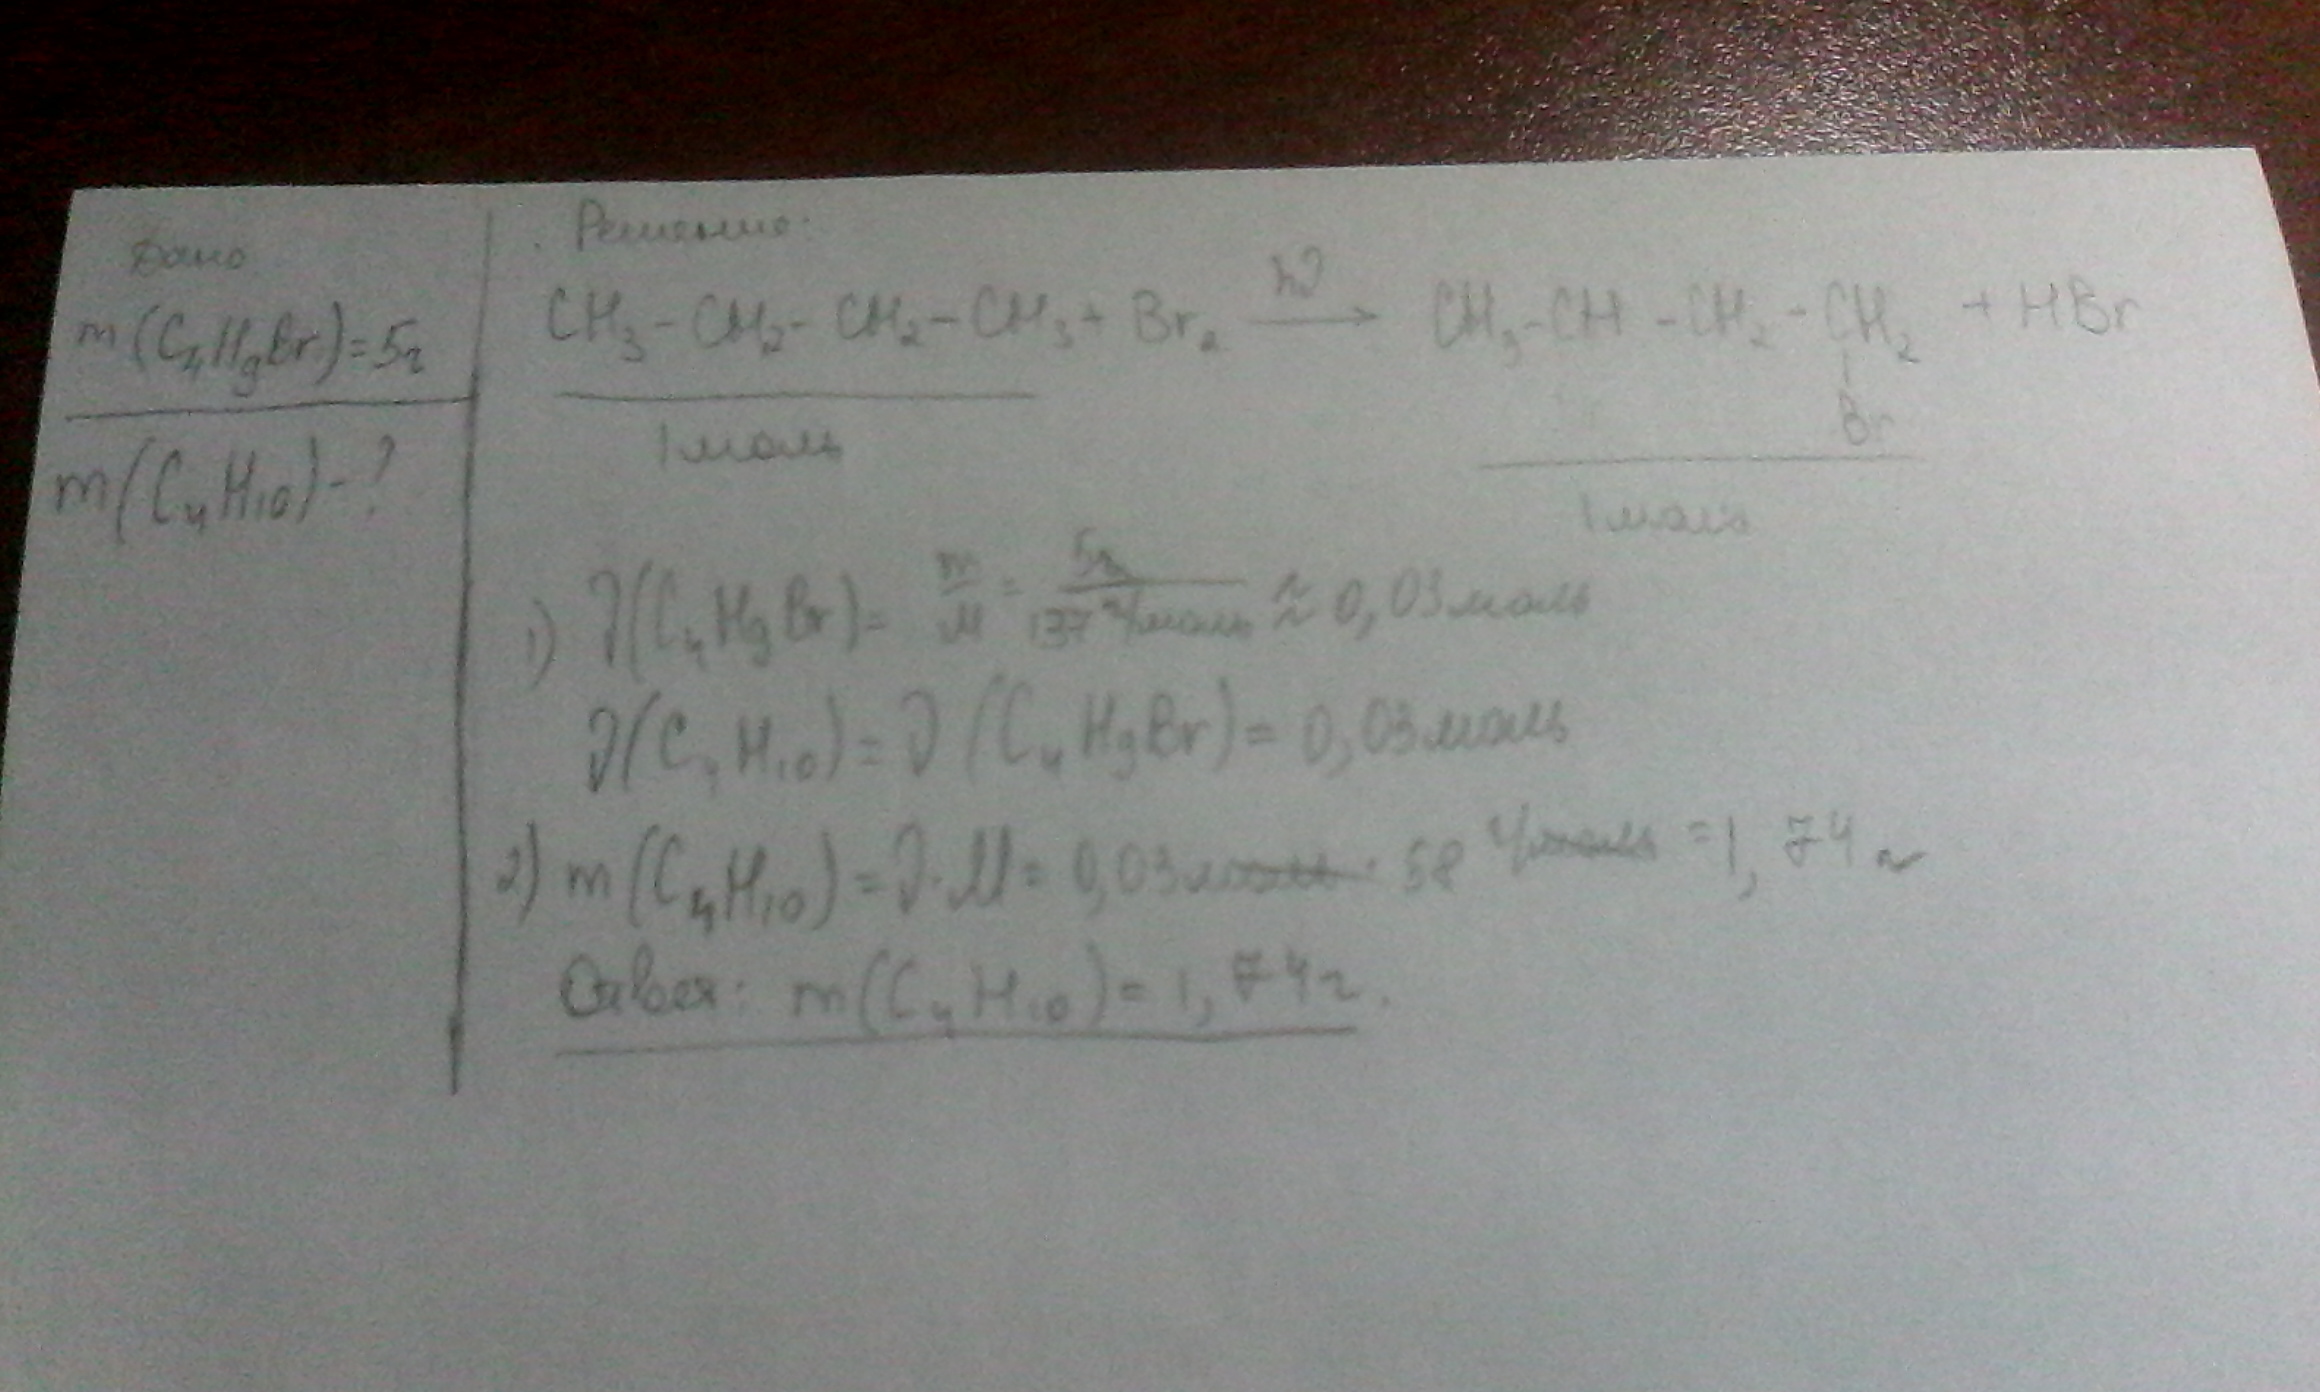 Дано
m(C₄H₉Br)=5г
m(C₄H₁₀)-?
Решение:
CH₃-CH₂-CH₂-CH₃+Br₂ hν → CH₃-CH-CH₂-CH₂ +HBr
Br
1моль
1моль
1) ν(C₄H₉Br)= m/M = 5г/137 г/моль ≈ 0,03моль
ν(C₄H₁₀)=ν(C₄H₉Br)= 0,03моль
2) m(C₄H₁₀)=ν·M= 0,03моль · 58 г/моль =1,74г
Ответ: m(C₄H₁₀)=1,74г.